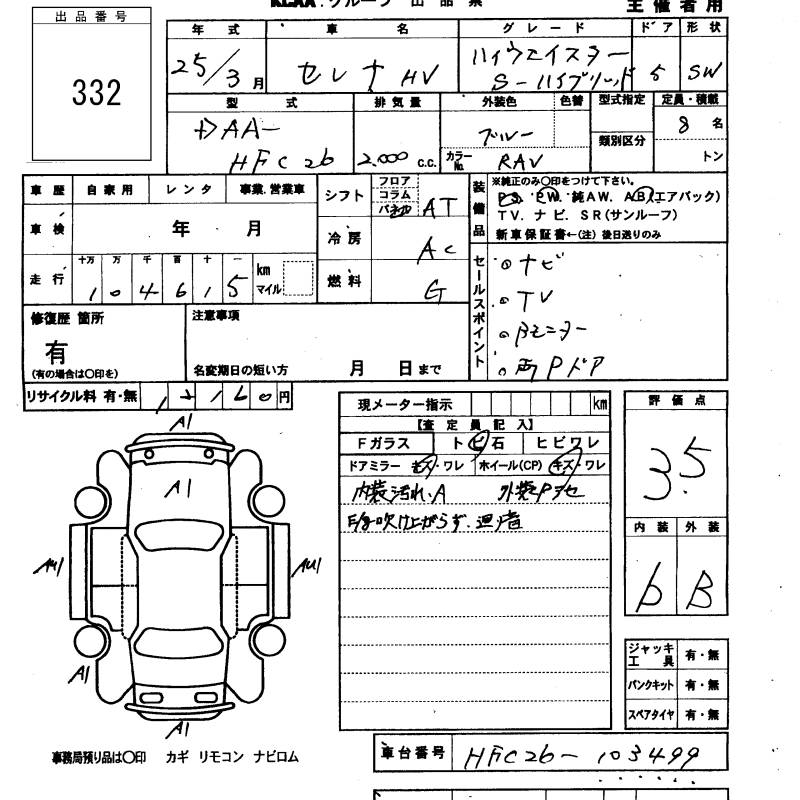 KCAA.グループ 出品票
主催者用
出品番号
332
年式 車名 グレード ドア 形状
25/3月 セレナ HV ハイウェイスター S-ハイブリッド 5 SW
型式 排気量 外装色 色替 型式指定 定員・積載
DAA-HFC26 2.000 c.c. ブルー 8名
カラーNo. RAV 類別区分 トン
車歴 自家用 レンタ 事業.営業車
車検 年 月
走行 十万 万 千 百 十 一 km マイル
1 0 4 6 1 5
シフト フロア コラム パネル AT
冷房 AC
燃料 G
装備品
※純正のみ〇印をつけて下さい。
PS.PW.純AW.AB(エアバック)
TV.ナビ.SR(サンルーフ)
新車保証書←(注)後日送りのみ
セールスポイント
○ナビ
○TV
○Bモニター
○両Pドア
修復歴 箇所
有
(有の場合は〇印を)
注意事項
名変期日の短い方 月 日まで
リサイクル料 有・無 12160円
現メーター指示 km
【査定員記入】
Fガラス トビ石 ヒビワレ
ドアミラー キズ・ワレ ホイール(CP) キズ・ワレ
内装汚れ.A
E/g吹け上がらず.
評価点
3.5
内装 外装
b B
A1
A1
AU1
AU1
A1
A1
ジャッキ工具 有・無
パンクキット 有・無
スペアタイヤ 有・無
事務局預り品は〇印 カギ リモコン ナビロム
車台番号 HFC26-103499